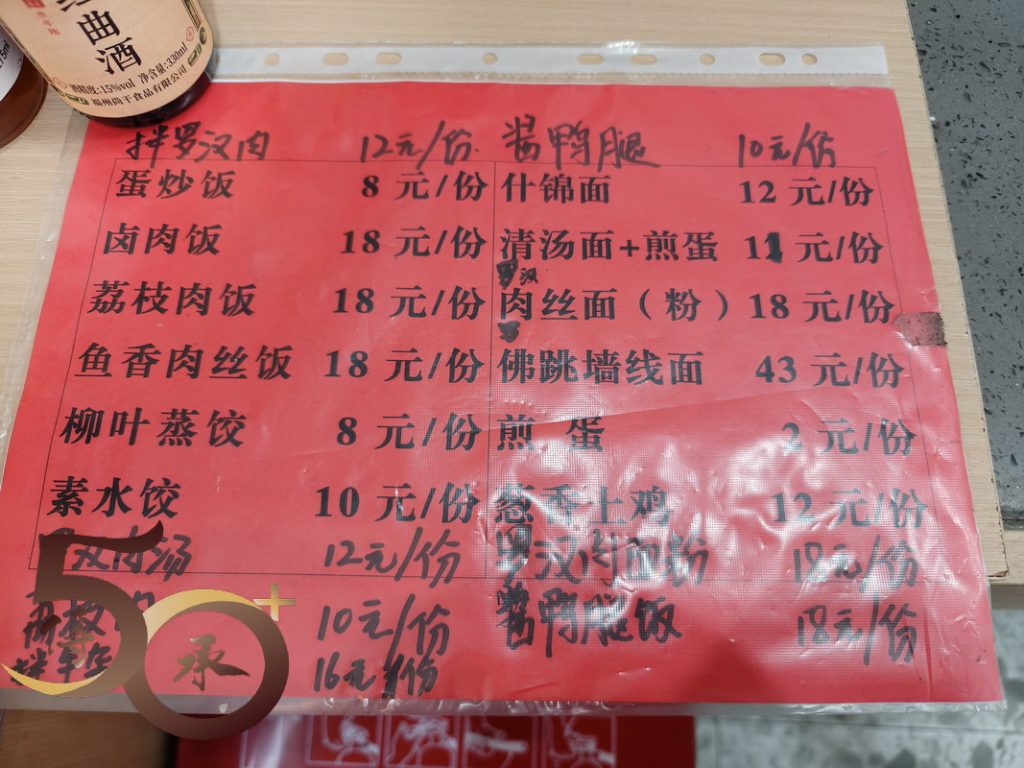 曲酒
净含量:330ml
酒精度:15%vol
福州尚干食品有限公司
拌罗汉肉 12元/份 酱鸭腿 10元/份
蛋炒饭 8 元/份 什锦面 12 元/份
卤肉饭 18 元/份 清汤面+煎蛋 11 元/份
罗汉
荔枝肉饭 18 元/份 肉丝面（粉）18 元/份
鱼香肉丝饭 18 元/份 佛跳墙线面 43 元/份
柳叶蒸饺 8 元/份 煎 蛋 2 元/份
素水饺 10 元/份 葱香土鸡 12 元/份
汉肉汤 12元/份 罗汉肉面粉 18元/份
荔枝 10元/份 酱鸭腿饭 18元/份
拌 16元/份
50+
承